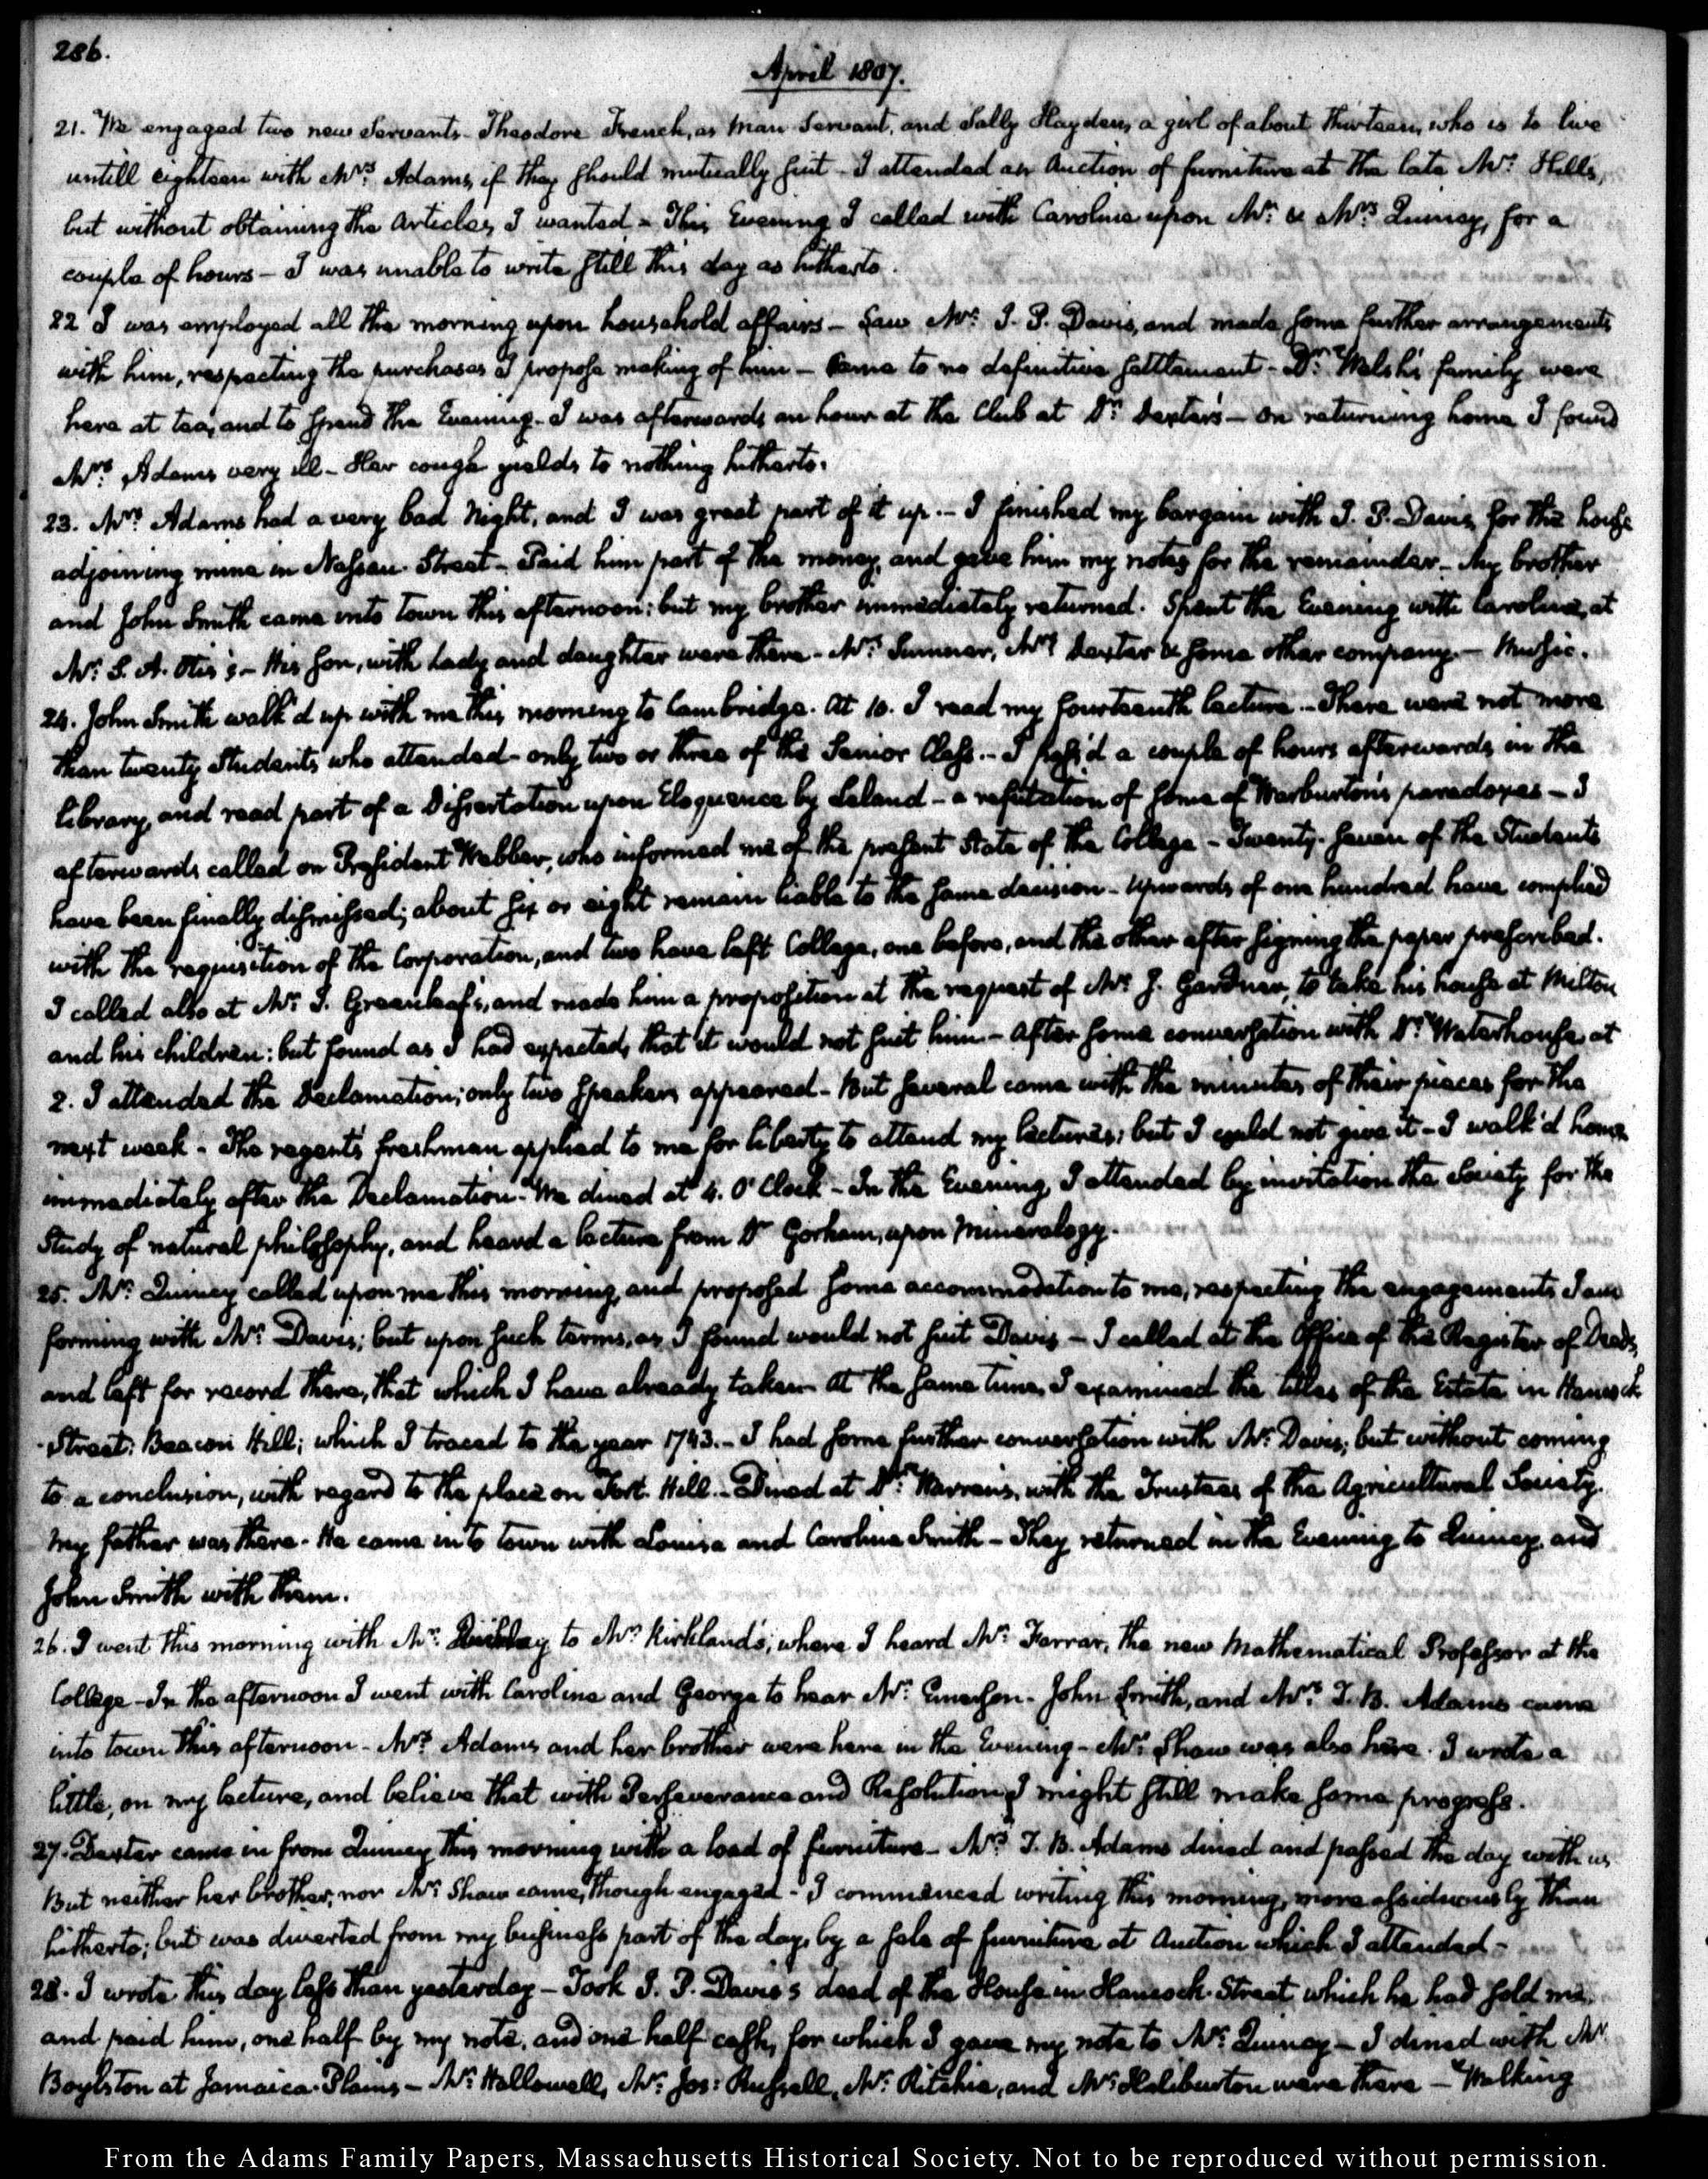 286.
April 1807.
21. We engaged two new Servants. Theodore French, as Man Servant, and Sally Hayden, a girl of about thirteen, who is to live
untill eighteen with Mrs. Adams, if they should mutually suit - I attended an Auction of furniture at the late Mr. Hills,
but without obtaining the Articles I wanted - This Evening I called with Caroline upon Mr. & Mrs. Quincy, for a
couple of hours - I was unable to write still this day as hitherto.
22 I was employed all the morning upon household affairs - Saw Mr. I. P. Davis, and made some further arrangements
with him, respecting the purchases I propose making of him - Came to no definitive settlement - Dr. Welsh's family were
here at tea, and to spend the Evening - I was afterwards an hour at the Club at Dr. Dexter's - On returning home I found
Mrs. Adams very ill - Her cough yields to nothing hitherto.
23. Mrs. Adams had a very bad Night, and I was great part of it up. - I finished my bargain with I. P. Davis, for the house
adjoining mine in Nassau-Street - Paid him part of the money, and gave him my notes for the remainder - My brother
and John Smith came into town this afternoon: but my brother immediately returned. Spent the Evening with Caroline, at
Mr. S. A. Otis's - His son, with Lady and daughter were there - Mr. Sumner, Mrs. Dexter & some other company - Music.
24. John Smith walk'd up with me this morning to Cambridge. At 10. I read my fourteenth lecture - There were not more
than twenty Students who attended - only two or three of the Senior Class. - I pass'd a couple of hours afterwards in the
library, and read part of a Dissertation upon Eloquence by Leland - a refutation of some of Warburton's paradoxes - I
afterwards called on President Webber, who informed me of the present State of the College - Twenty-seven of the Students
have been finally dismissed; about six or eight remain liable to the same decision - Upwards of one hundred have complied
with the requisition of the Corporation, and two have left College, one before, and the other after signing the paper prescribed.
I called also at Mr. T. Greenleaf's, and made him a proposition at the request of Mr. J. Gardner, to take his house at Milton
and his children: but found as I had expected, that it would not suit him - After some conversation with Dr. Waterhouse, at
2. I attended the Declamation; only two Speakers appeared - But several came with the minutes of their pieces for the
next week - The regent's freshman applied to me for liberty to attend my lectures; but I could not give it - I walk'd home
immediately after the Declamation - We dined at 4. O'Clock - In the Evening, I attended by invitation the Society for the
Study of natural philosophy, and heard a lecture from Dr Gorham, upon Mineralogy.
25. Mr. Quincy called upon me this morning, and proposed some accommodation to me, respecting the engagements I am
forming with Mr. Davis; but upon such terms, as I found would not suit Davis - I called at the Office of the Register of Deeds,
and left for record there, that which I have already taken - At the same time, I examined the titles of the Estate in Hancock
-Street: Beacon Hill; which I traced to the year 1743. - I had some further conversation with Mr. Davis; but without coming
to a conclusion, with regard to the place on Fort-Hill. - Dined at Dr. Warren's, with the Trustees of the Agricultural Society.
My father was there - He came into town with Louisa and Caroline Smith - They returned in the Evening to Quincy, and
John Smith with them.
26. I went this morning with Mr. to Mr. Kirkland's; where I heard Mr. Farrar, the new Mathematical Professor at the
College - In the afternoon I went with Caroline and George to hear Mr. Emerson - John Smith, and Mrs. T. B. Adams came
into town this afternoon - Mrs. Adams, and her brother were here in the Evening - Mr. Shaw was also here. I wrote a
little, on my lecture, and believe that with Perseverance and Resolution I might still make some progress.
27. Dexter came in from Quincy this morning with a load of furniture - Mrs. T. B. Adams dined and passed the day with us.
But neither her brother, nor Mr. Shaw came, though engaged - I commenced writing this morning, more assiduously than
hitherto; but was diverted from my business part of the day, by a sale of furniture at Auction which I attended -
28. I wrote this day less than yesterday - Took I. P. Davis's deed of the House in Hancock-Street which he had sold me,
and paid him, one half by my note, and one half cash, for which I gave my note to Mr. Quincy - I dined with Mr.
Boylston at Jamaica-Plains - Mr. Hallowell, Mr. Jos: Russell, Mr. Ritchie, and Mr. Haliburton were there - Walking
From the Adams Family Papers, Massachusetts Historical Society. Not to be reproduced without permission.